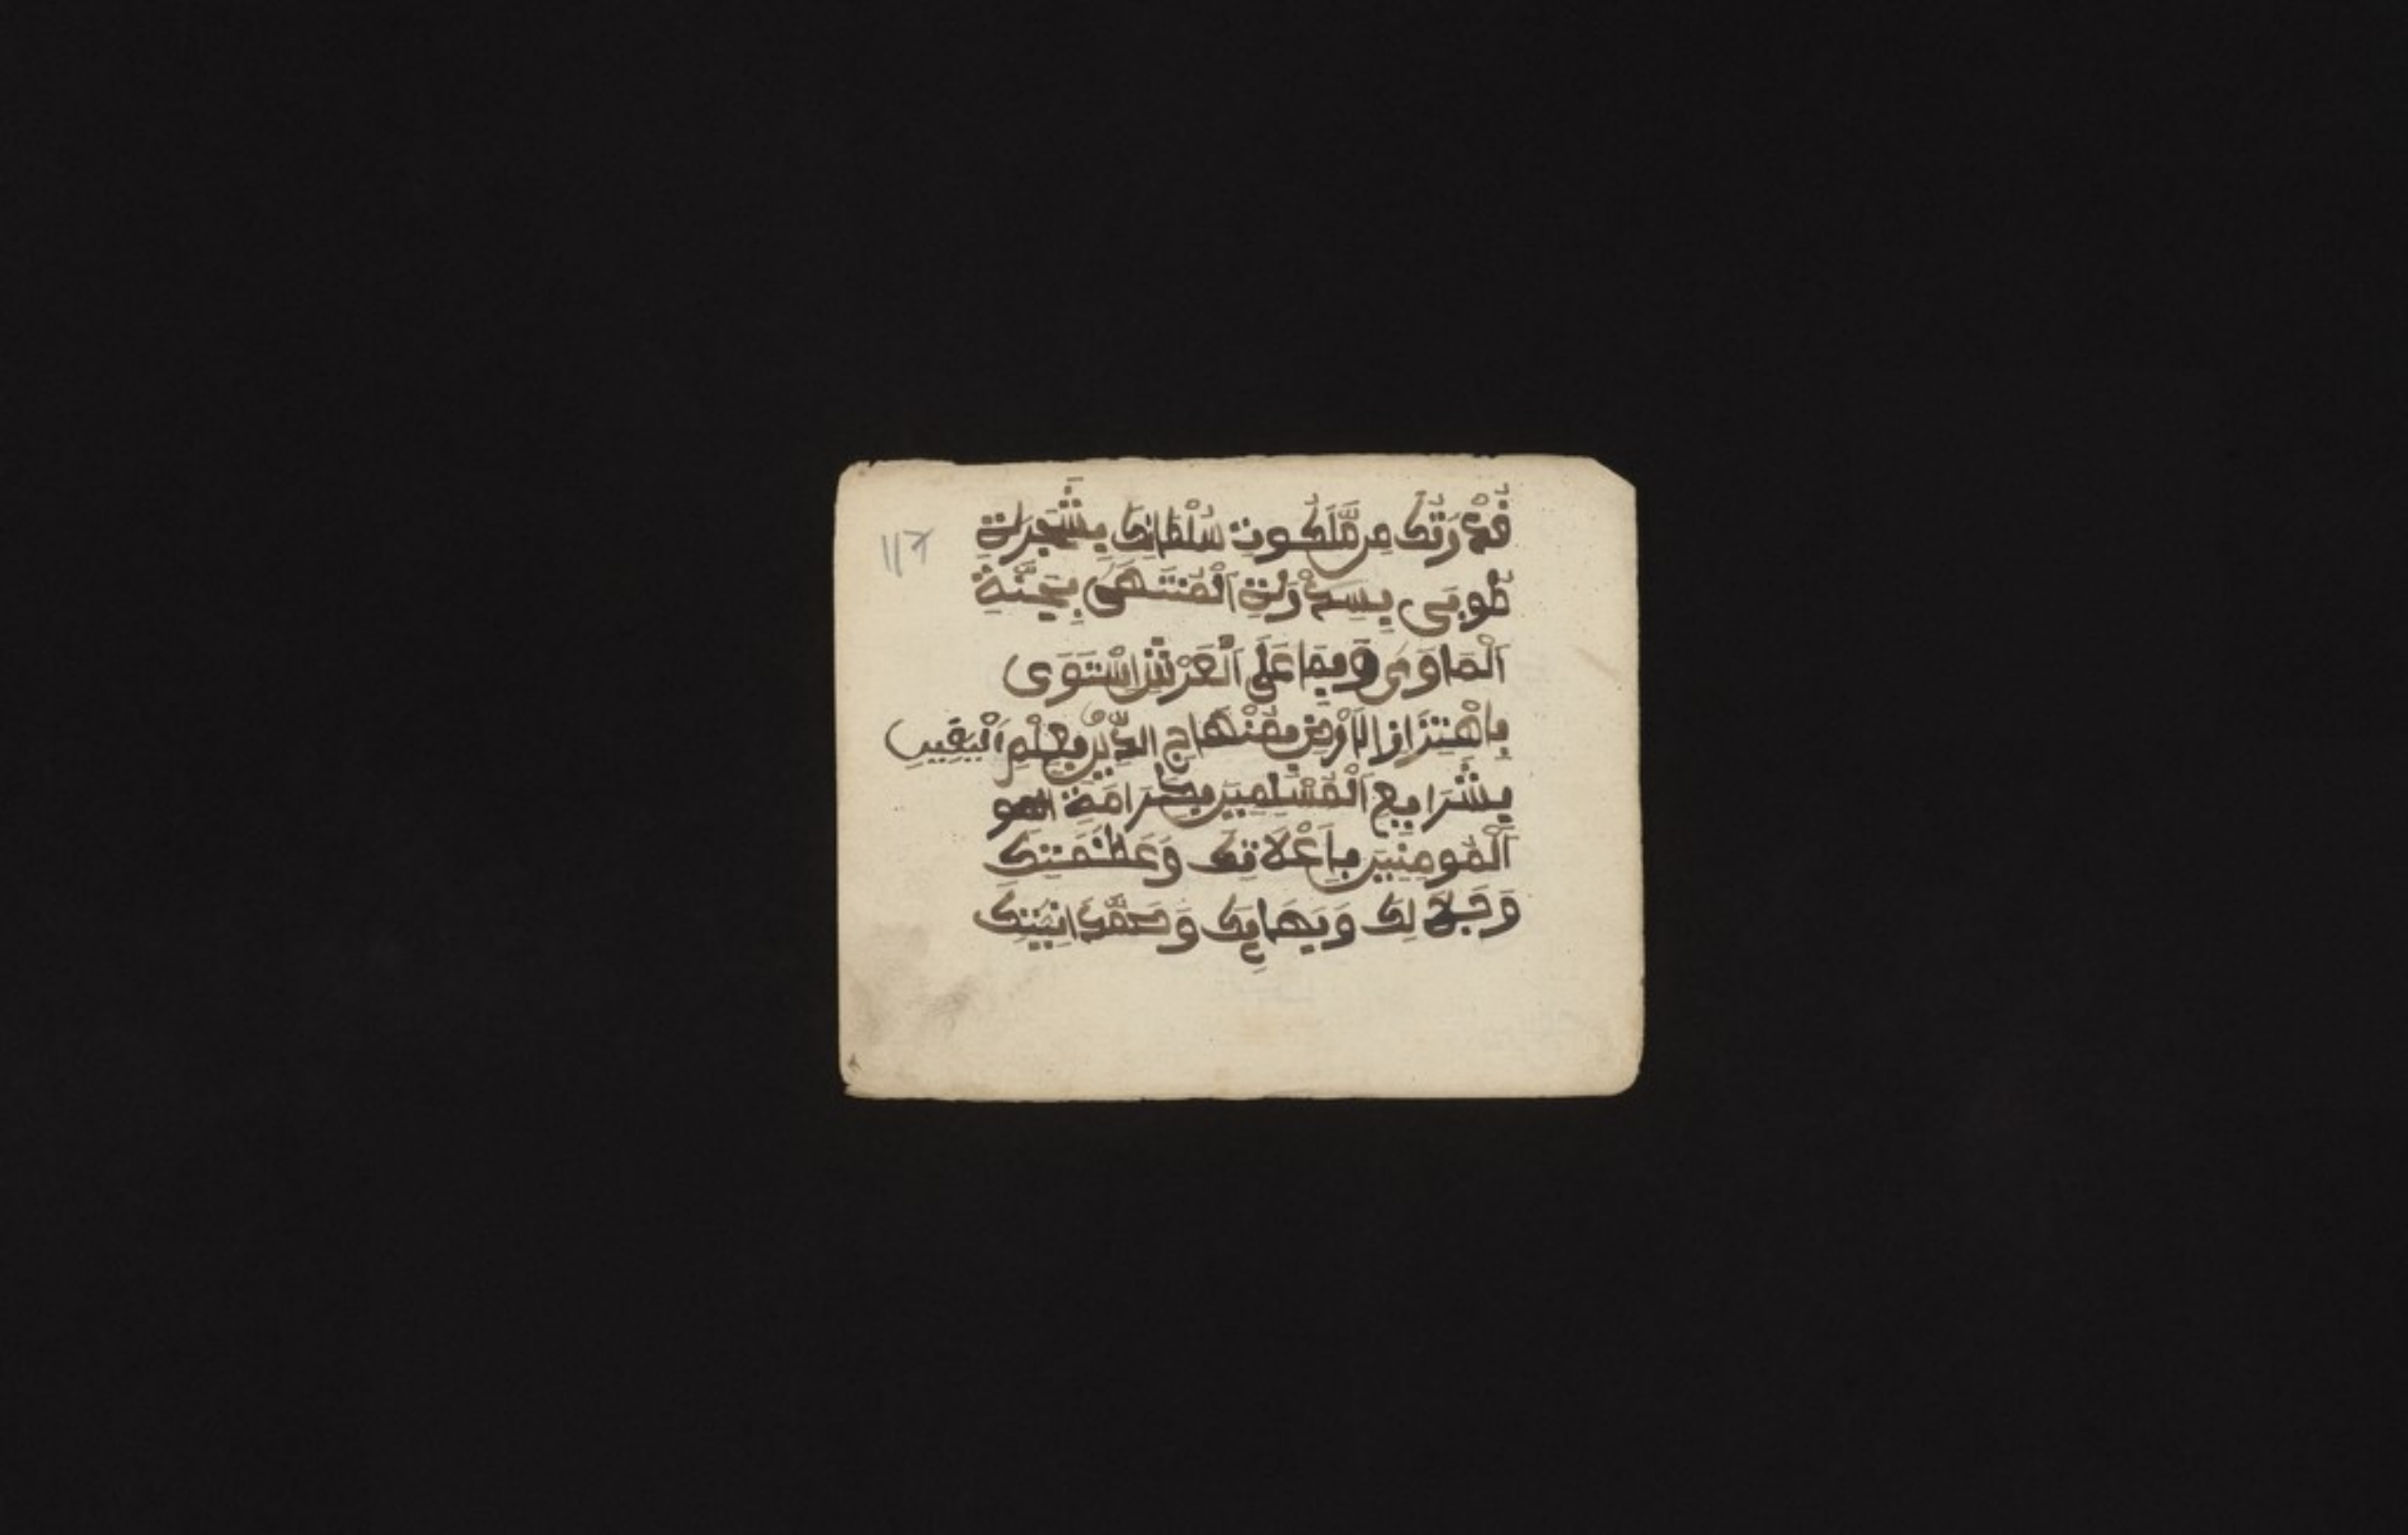 قُدْرَتُكَ مِن مَّلَكُوتِ سُلْطَانِكَ بِشَجَرَتِ
طُوبَى بِسِدْرَتِ اَلْمُنتَهَى بِجَنَّةِ
اَلْمَاوَى وَبِمَا عَلَى اَلْعَرْشِ اسْتَوَى
بِاهْتِزَازِ الَارْضِ بِمِنْهَاجِ الدِّينِ بِعِلْمِ اَلْيَقِينِ
بِشَرَايِعِ اَلْمُسْلِمِينَ بِكَرَامَةِ
اَلْمُومِنِينَ بِاَعْلَاتِكَ وَعَظَمَتِكَ
وَجَلَالِكَ وَبَهَايِكَ وَصَمَّدَانِيَتِكَ
117